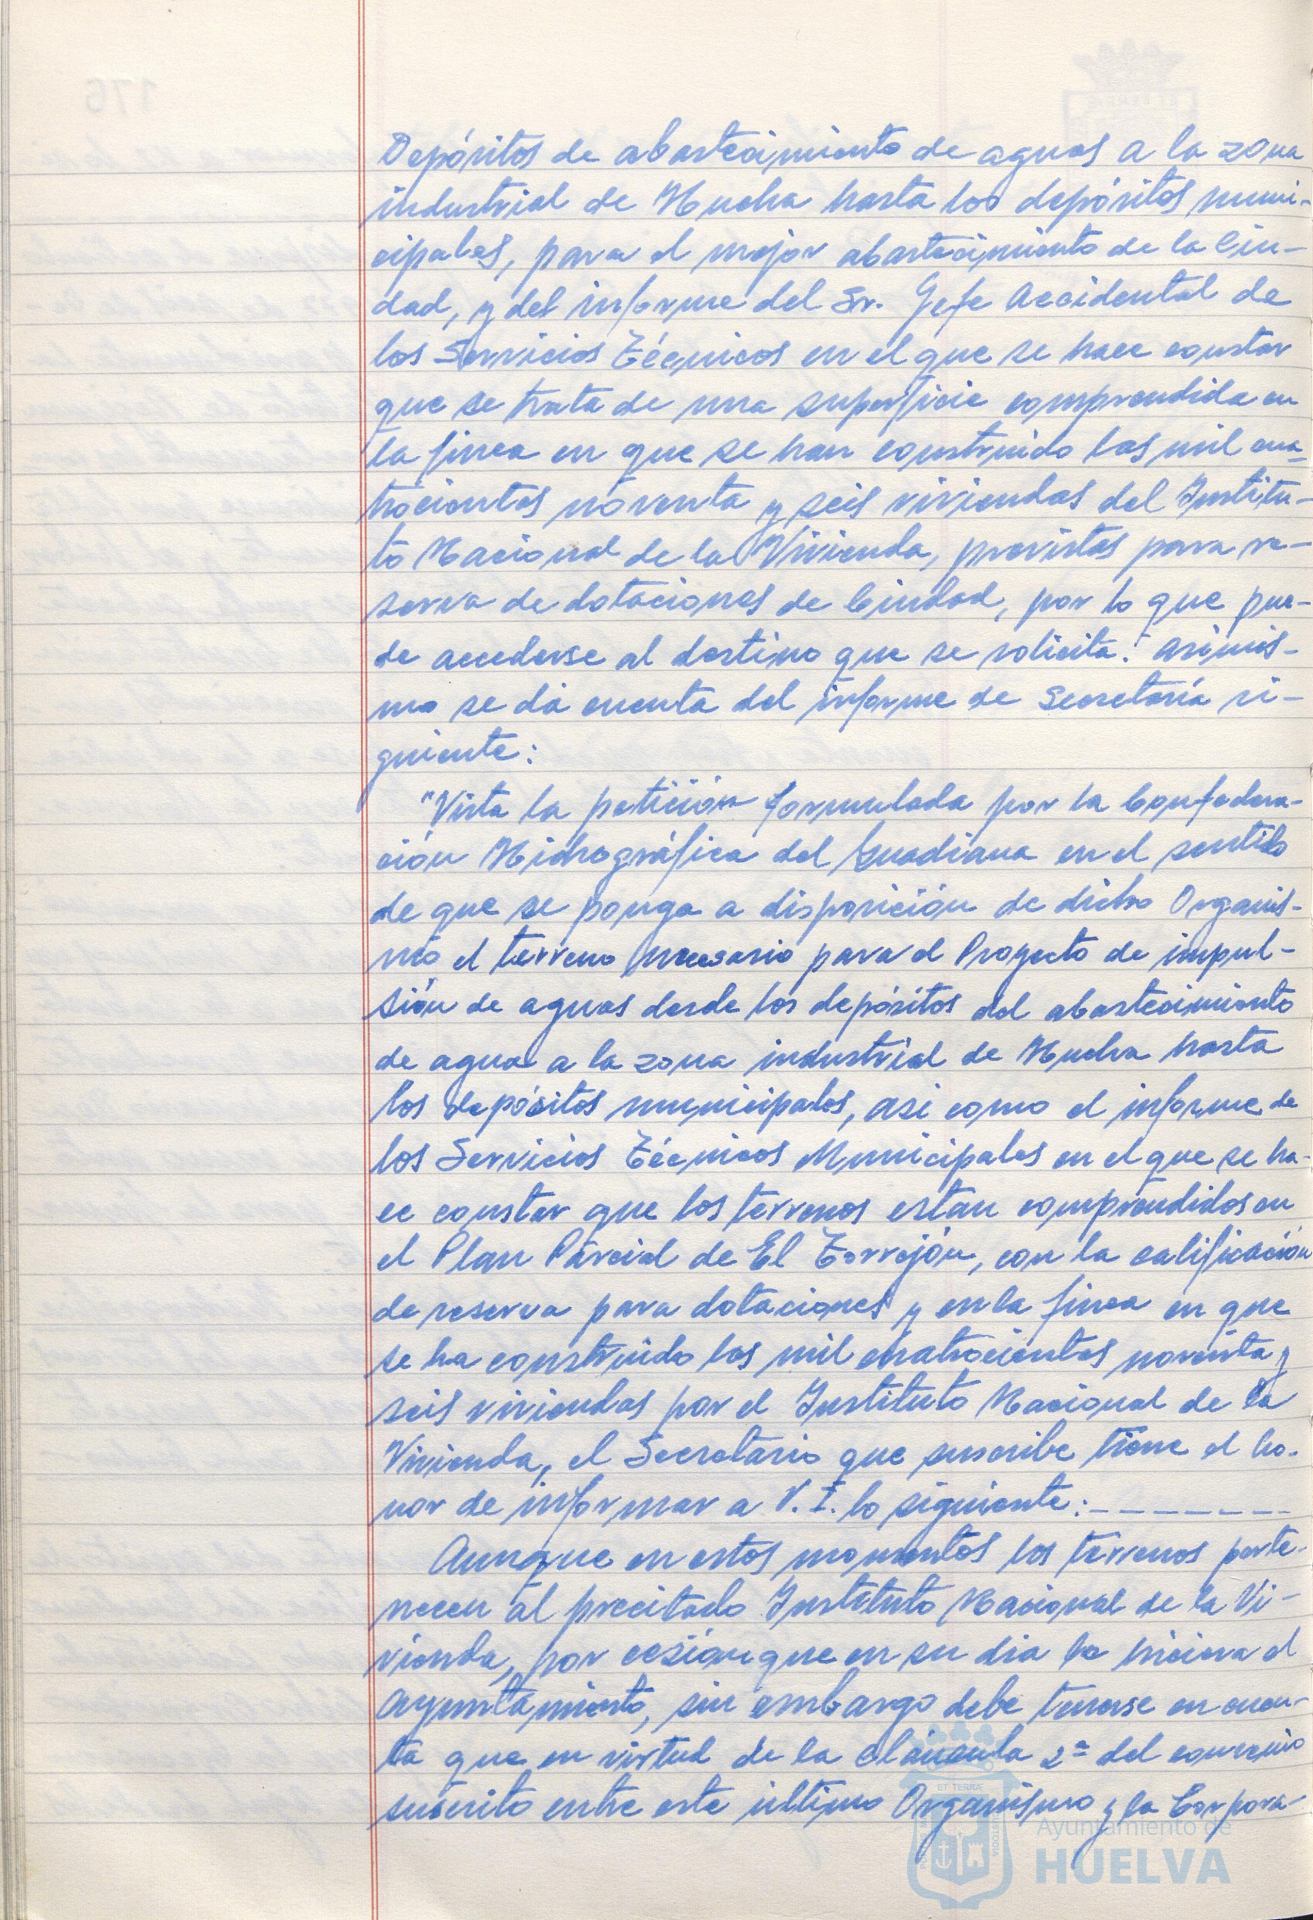 Depósitos de abastecimiento de aguas a la zona
industrial de Huelva hasta los depósitos muni-
cipales, para el mejor abastecimiento de la Ciu-
dad, y del informe del Sr. Jefe Accidental de
los Servicios Técnicos en el que se hace constar
que se trata de una superficie comprendida en
la finca en que se han construido las mil cua-
trocientas noventa y seis viviendas del Institu-
to Nacional de la Vivienda, previstas para re-
serva de dotaciones de Ciudad, por lo que pue-
de accederse al destino que se solicita. Asimis-
mo se dá cuenta del informe de Secretaría si-
guiente:
"Vista la petición formulada por la Confedera-
ción Hidrográfica del Guadiana en el sentido
de que se ponga a disposición de dicho Organis-
mo el terreno necesario para el Proyecto de impul-
sión de aguas desde los depósitos del abastecimiento
de agua a la zona industrial de Huelva hasta
los depósitos municipales, asi como el informe de
los Servicios Técnicos Municipales en el que se ha-
ce constar que los terrenos estan comprendidos en
el Plan Parcial de El Torrejón, con la calificación
de reserva para dotaciones y en la finca en que
se ha construido las mil cuatrocientas noventa y
seis viviendas por el Instituto Nacional de la
Vivienda, el Secretario que suscribe tiene el ho-
nor de informar a V. I. lo siguiente:-------
Aunque en estos momentos los terrenos perte-
necen al precitado Instituto Nacional de la Vi-
vienda, por cesión que en su dia le hiciera el
Ayuntamiento, sin embargo debe tenerse en cuen-
ta que en virtud de la cláusula 2ª del convenio
suscrito entre este último Organismo y la Corpora-
Ayuntamiento de
HUELVA